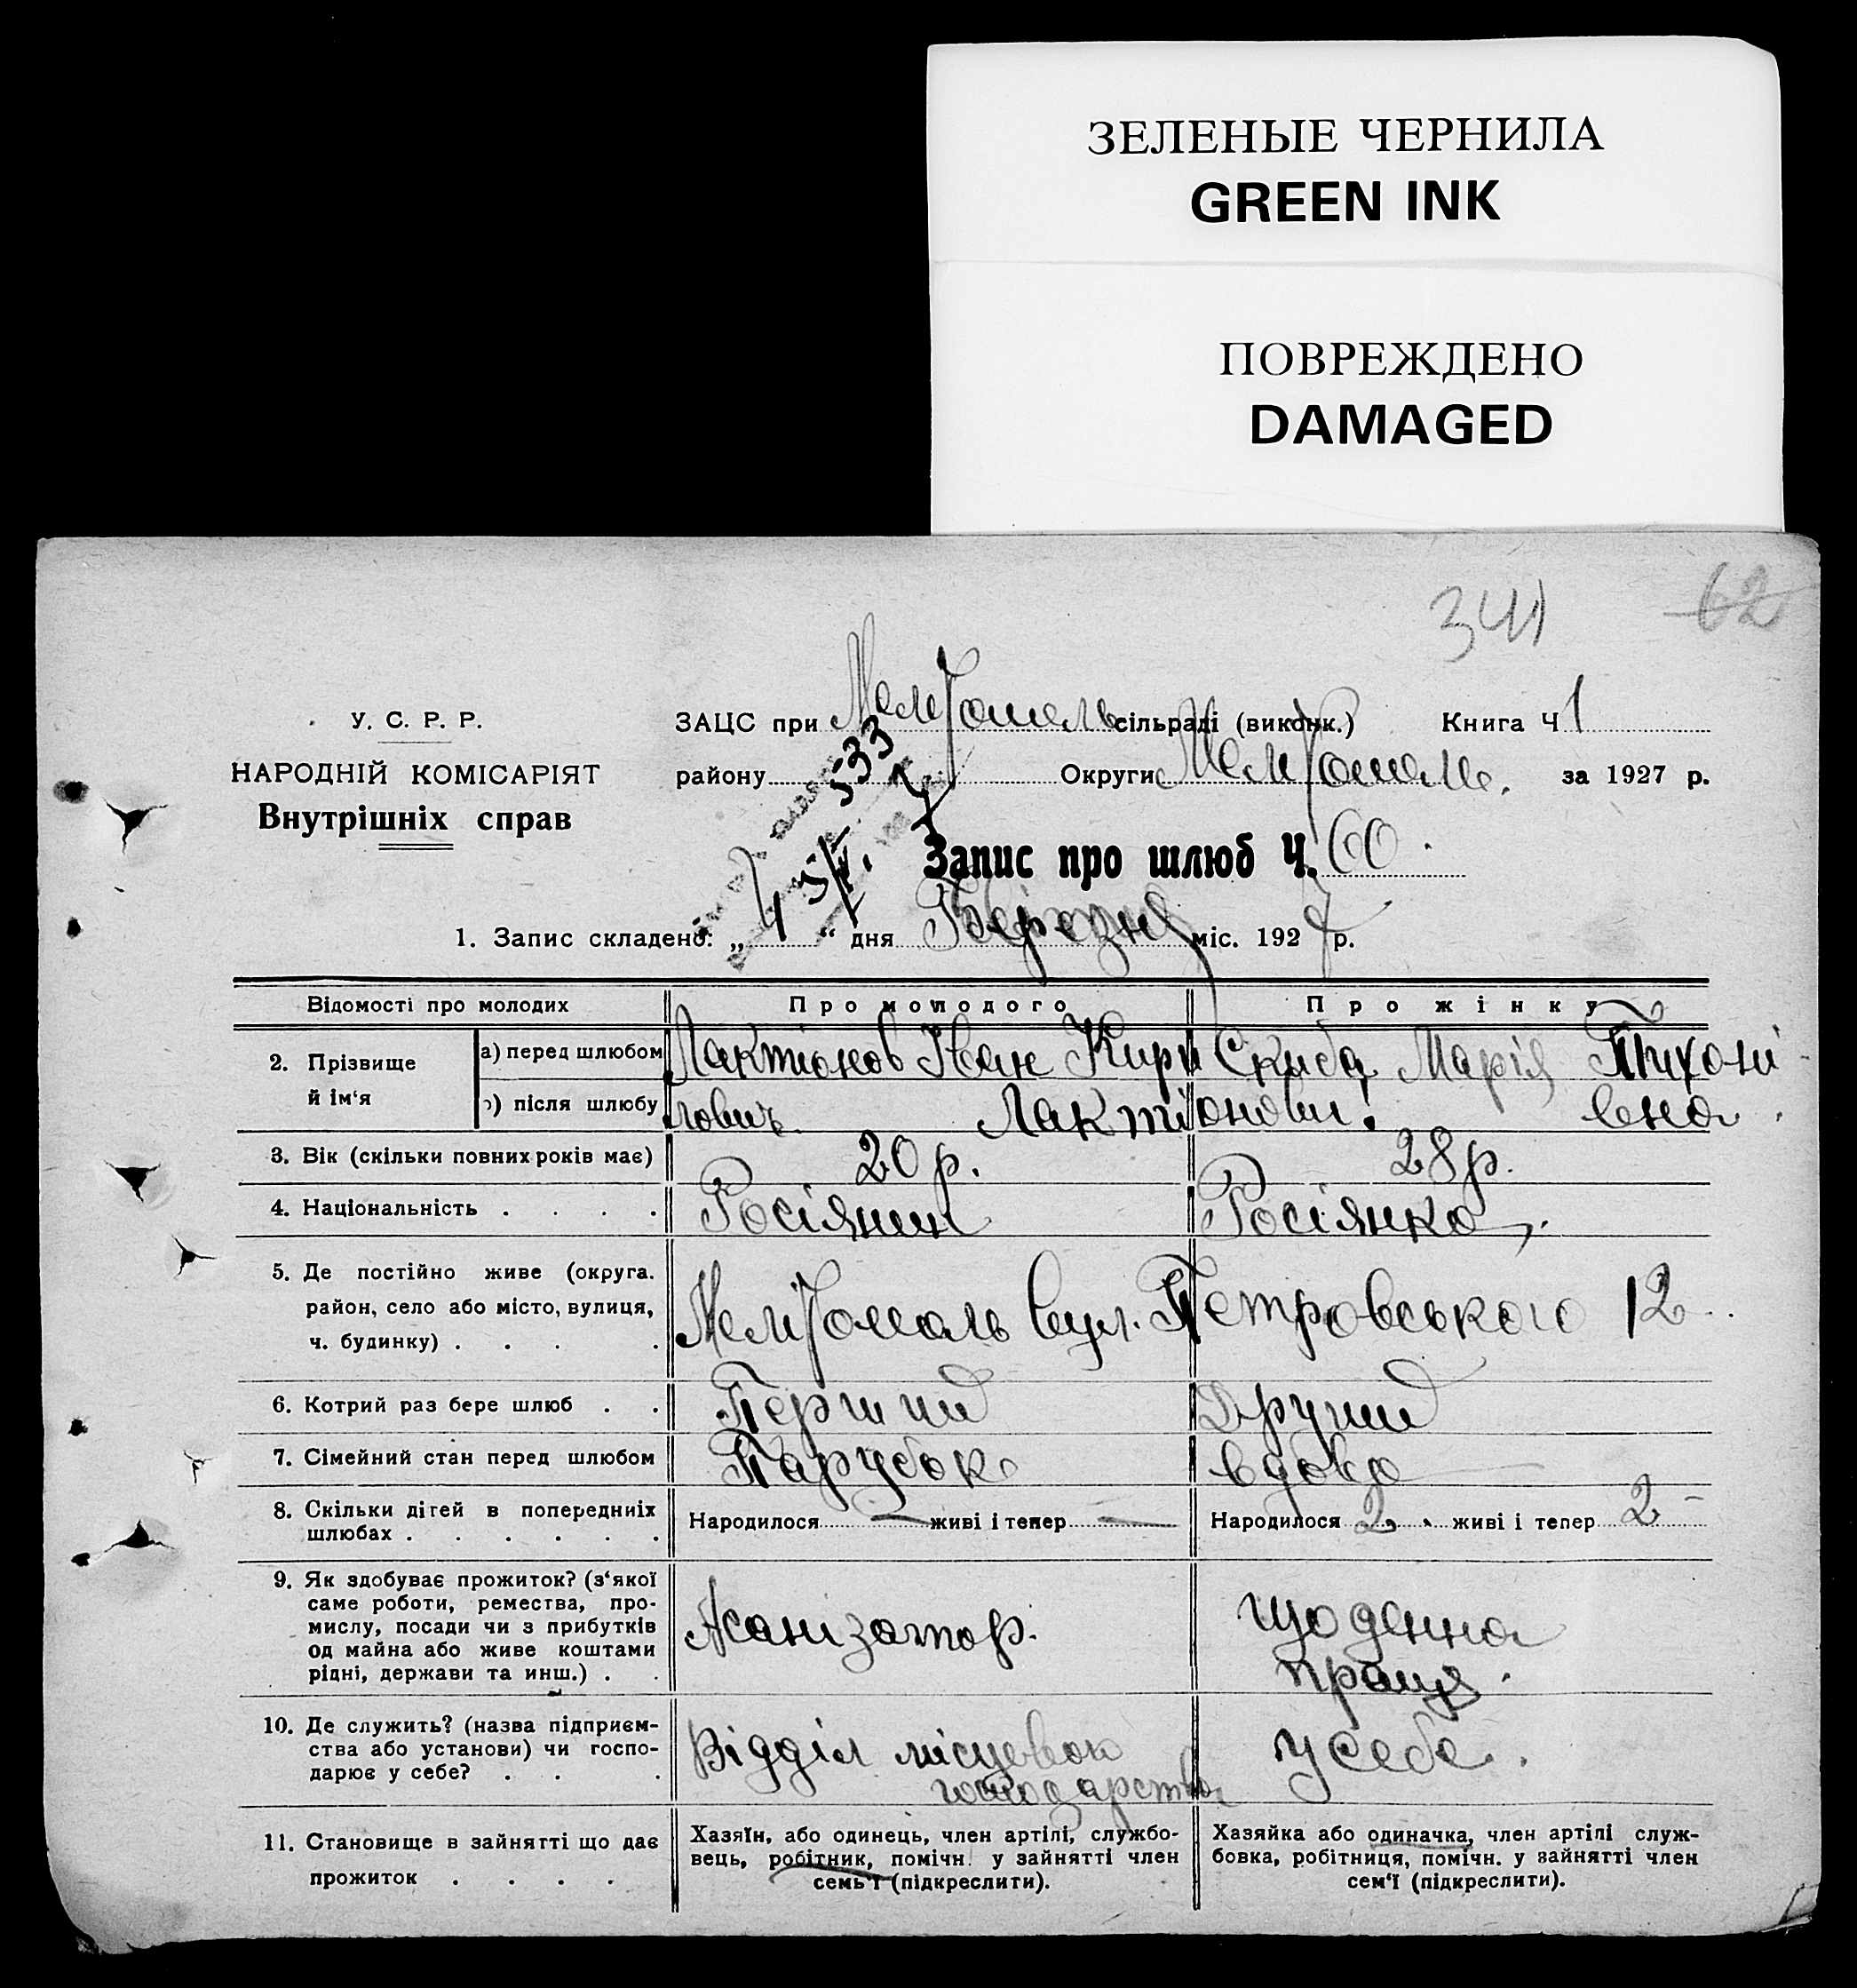 ЗЕЛЕНЫЕ ЧЕРНИЛА
GREEN INK
ПОВРЕЖДЕНО
DAMAGED
341
62
У. С. Р. Р.
НАРОДНІЙ КОМІСАРІЯТ
Внутрішніх справ
ЗАЦС при сільраді (виконк.) Книга Ч 1
району Округи за 1927 р.
533
Запис про шлюб Ч. 60
1. Запис складено: „4“ дня Березня міс. 1927 р.
Відомості про молодих Про молодого Про жінку
2. Прізвище й ім‘я
а) перед шлюбом Лактіонов Іван Кири Скиба Марія Тихоні
) після шлюбу лович Лактіонови! вна
3. Вік (скільки повних років має) 20 р. 28 р.
4. Національність . . . . Росіянин Росіянка
5. Де постійно живе (округа.
район, село або місто, вулиця,
ч. будинку) . . . . вул. Петровського 12
6. Котрий раз бере шлюб . . Перший Другий
7. Сімейний стан перед шлюбом Парубок вдова
8. Скільки дітей в попередниіх
шлюбах . . . . . .
Народилося — живі і тепер — Народилося 2 живі і тепер 2
9. Як здобуває прожиток? (з‘якої
саме роботи, ремества, про-
мислу, посади чи з прибутків
од майна або живе коштами
рідні, держави та инш.) . .
Асанізатор. щоденна
праця.
10. Де служить? (назва підприєм-
ства або установи) чи госпо-
дарює у себе? . . .
Відділ місцевого
господарства
у себе.
11. Становище в зайнятті що дає
прожиток . . . .
Хазяїн, або одинець, член артілі, службо-
вець, робітник, помічн. у зайнятті член
семь‘ї (підкреслити).
Хазяйка або одиначка, член артілі служ-
бовка, робітниця, помічн. у зайнятті член
сем‘ї (підкреслити).